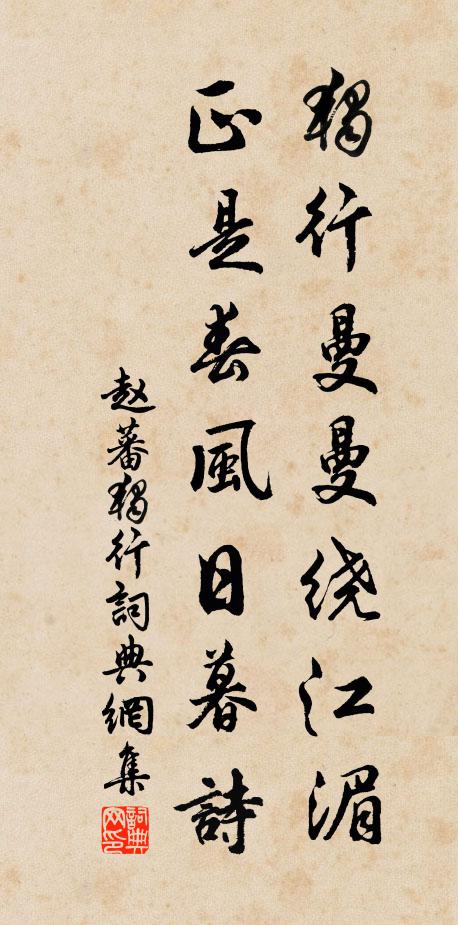 獨行曼曼绕江湄
正是春風日暮詩
赵蕃獨行詞典網集
詞典網印